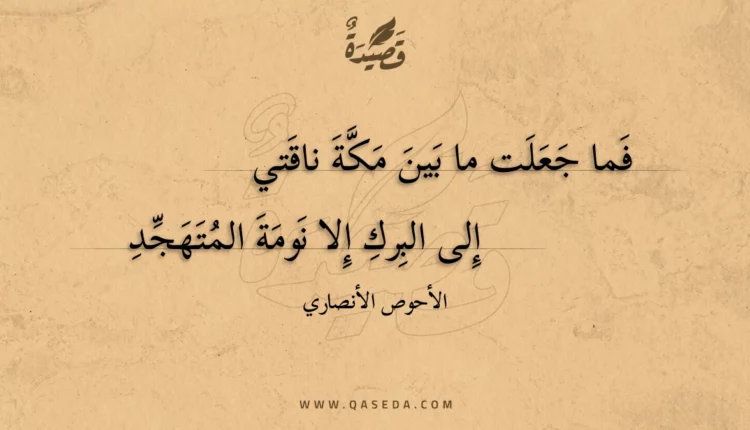 قَصِيْدَةٌ
فَما جَعَلَت ما بَينَ مَكَّةَ ناقَتي
إِلى البِركِ إِلا نَومَةَ المُتَهَجِّدِ
الأحوص الأنصاري
WWW.QASEDA.COM